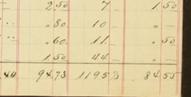 2 50 7 1 50
.. .80 10 "
.. .60 11 . 50
.. 1.50 44 "
40 94.73 1195 84 55